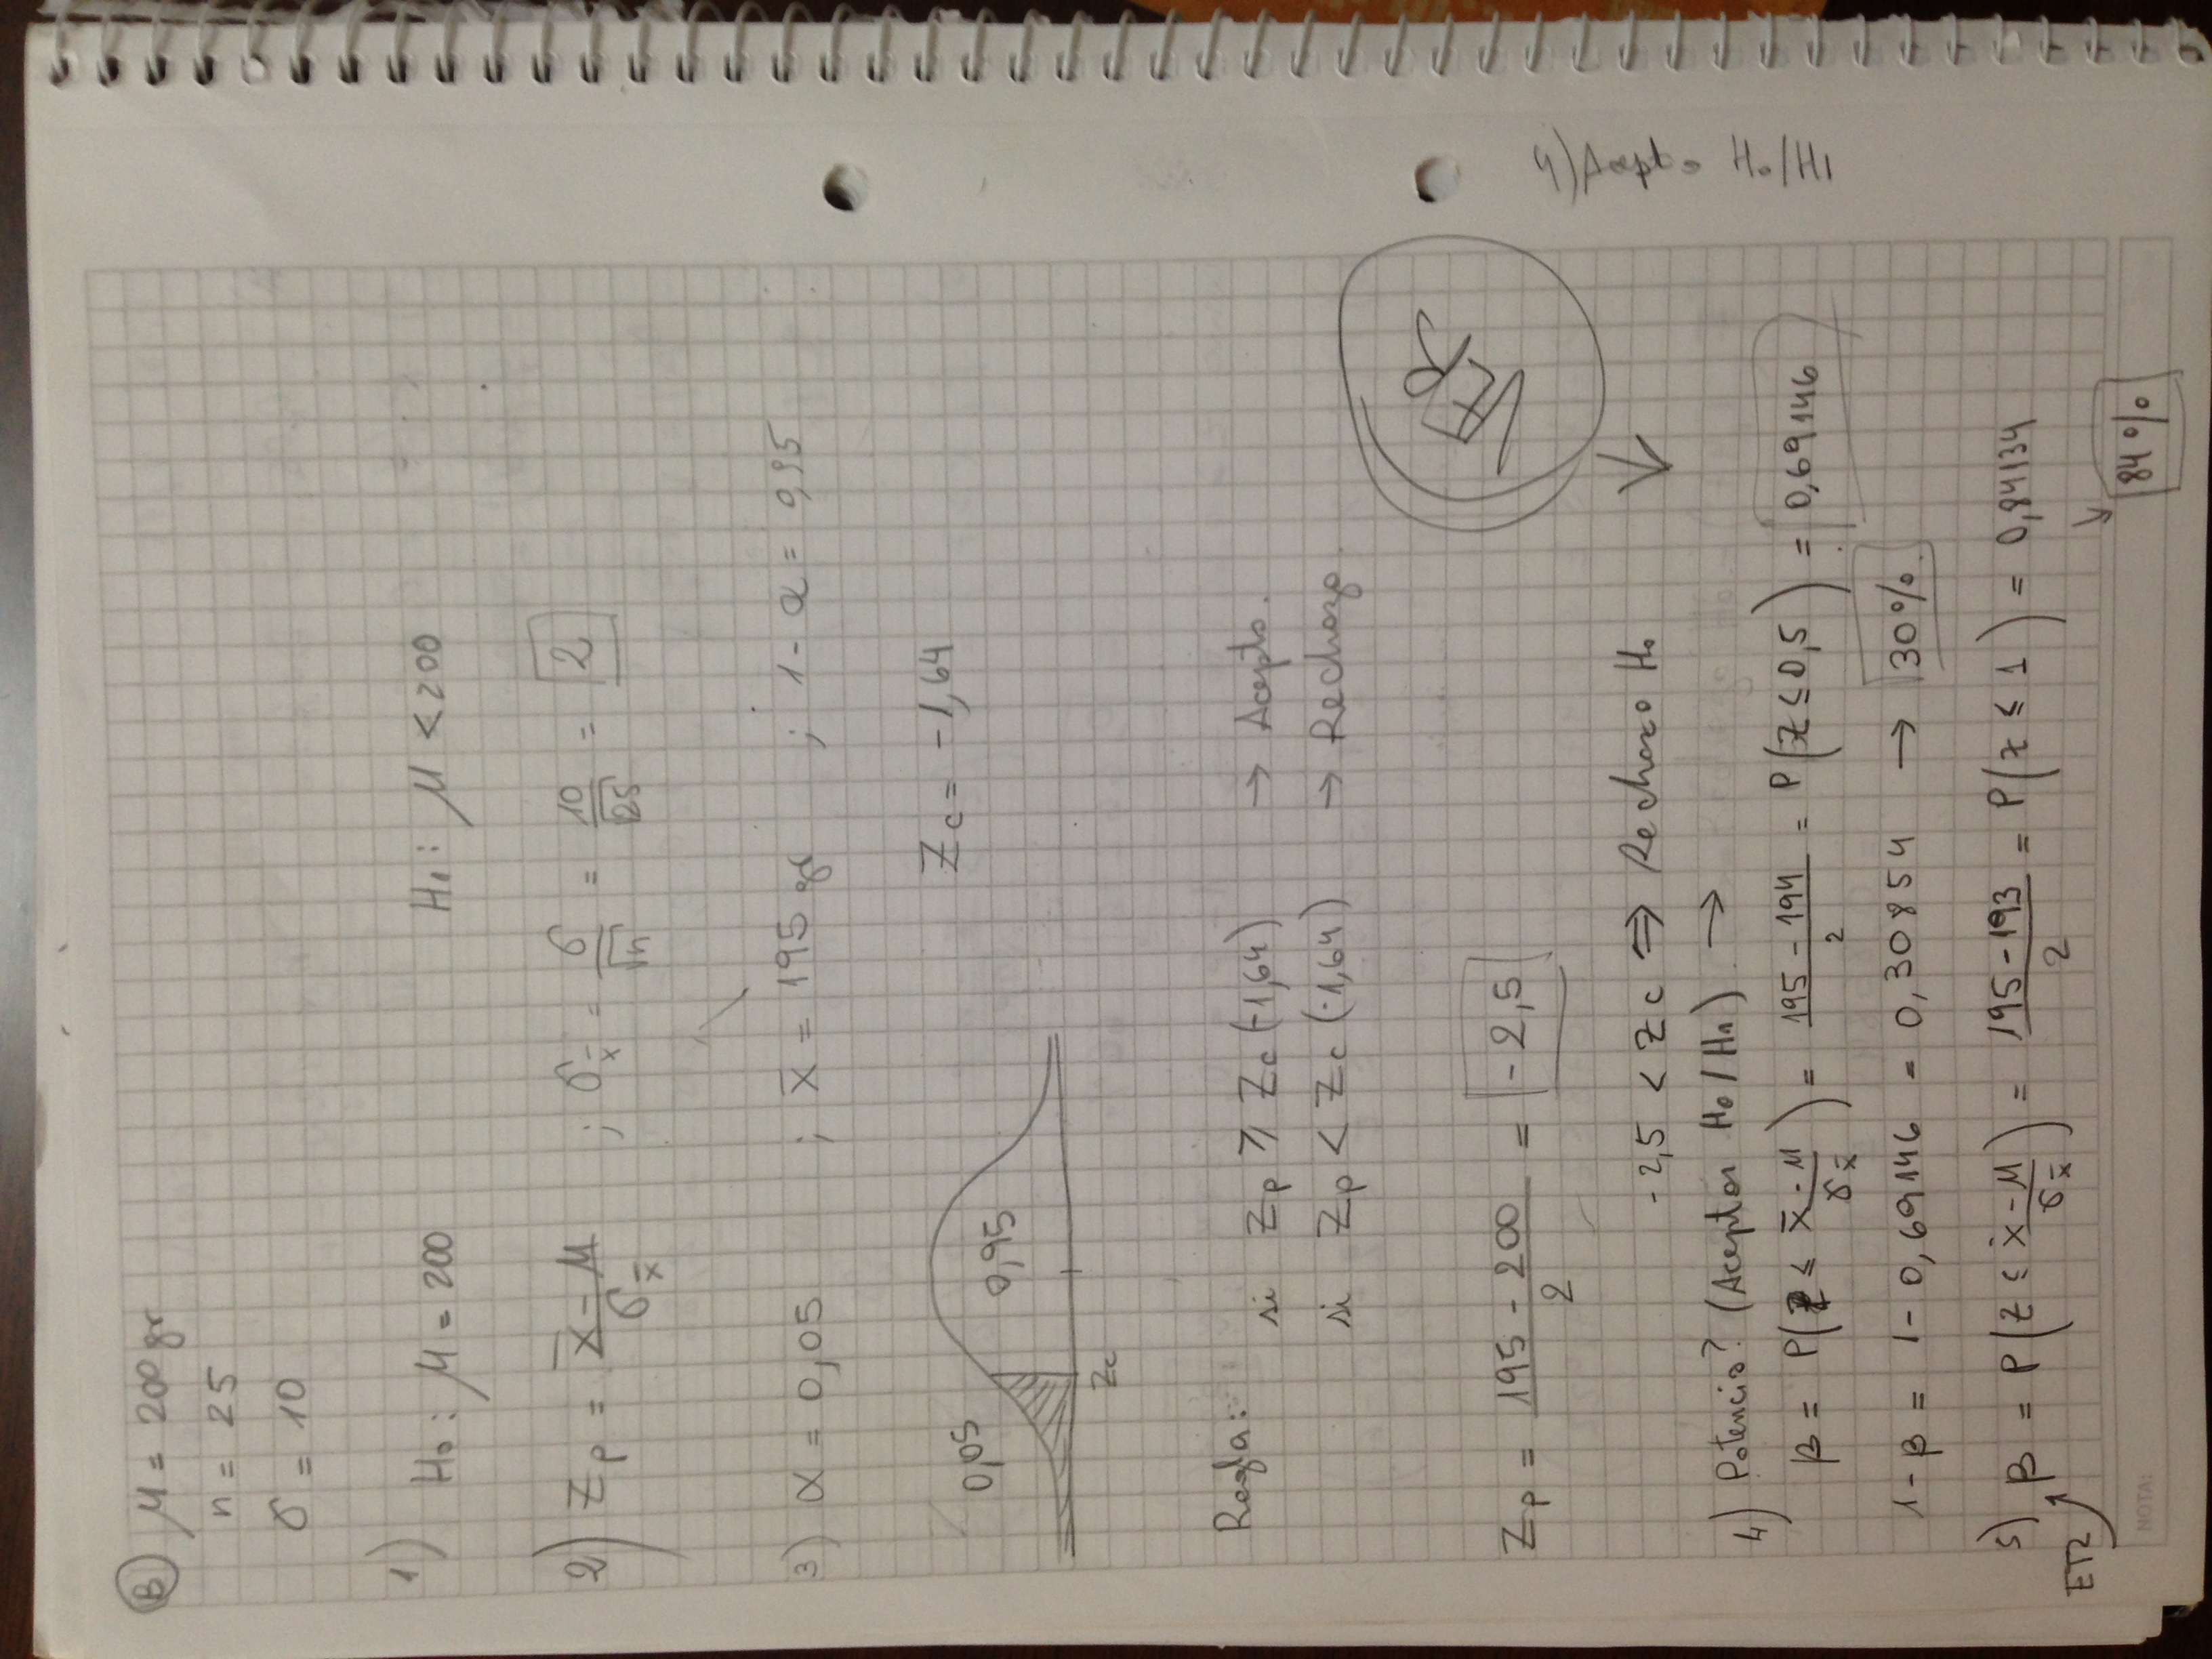 B) μ = 200 gr
n = 25
σ = 10
1) H₀: μ = 200   H₁: μ < 200
2) Zp = (x̄ - μ)/σx̄ ; σx̄ = σ/√n = 10/√25 = 2
3) α = 0,05 ; x̄ = 195 gr ; 1 - α = 0,95
Zc = -1,64
0,05
0,95
Zc
Regla:
si Zp ≥ Zc (-1,64) → Acepto.
si Zp < Zc (-1,64) → Rechazo.
VER
Zp = (195 - 200)/2 = -2,5
-2,5 < Zc ⇒ Rechazo H₀
4) Potencia? (Aceptar H₀/H₁) →
β = P(Z ≤ (x̄ - μ)/σx̄) = (195 - 194)/2 = P(Z ≤ 0,5) = 0,69146
1-β = 1 - 0,69146 = 0,30854 → 30%.
5) β = P(Z ≤ (x̄ - μ)/σx̄) = (195 - 193)/2 = P(Z ≤ 1) = 0,84134
ET2
84%
NOTA:
4) Acepto H₀/H₁